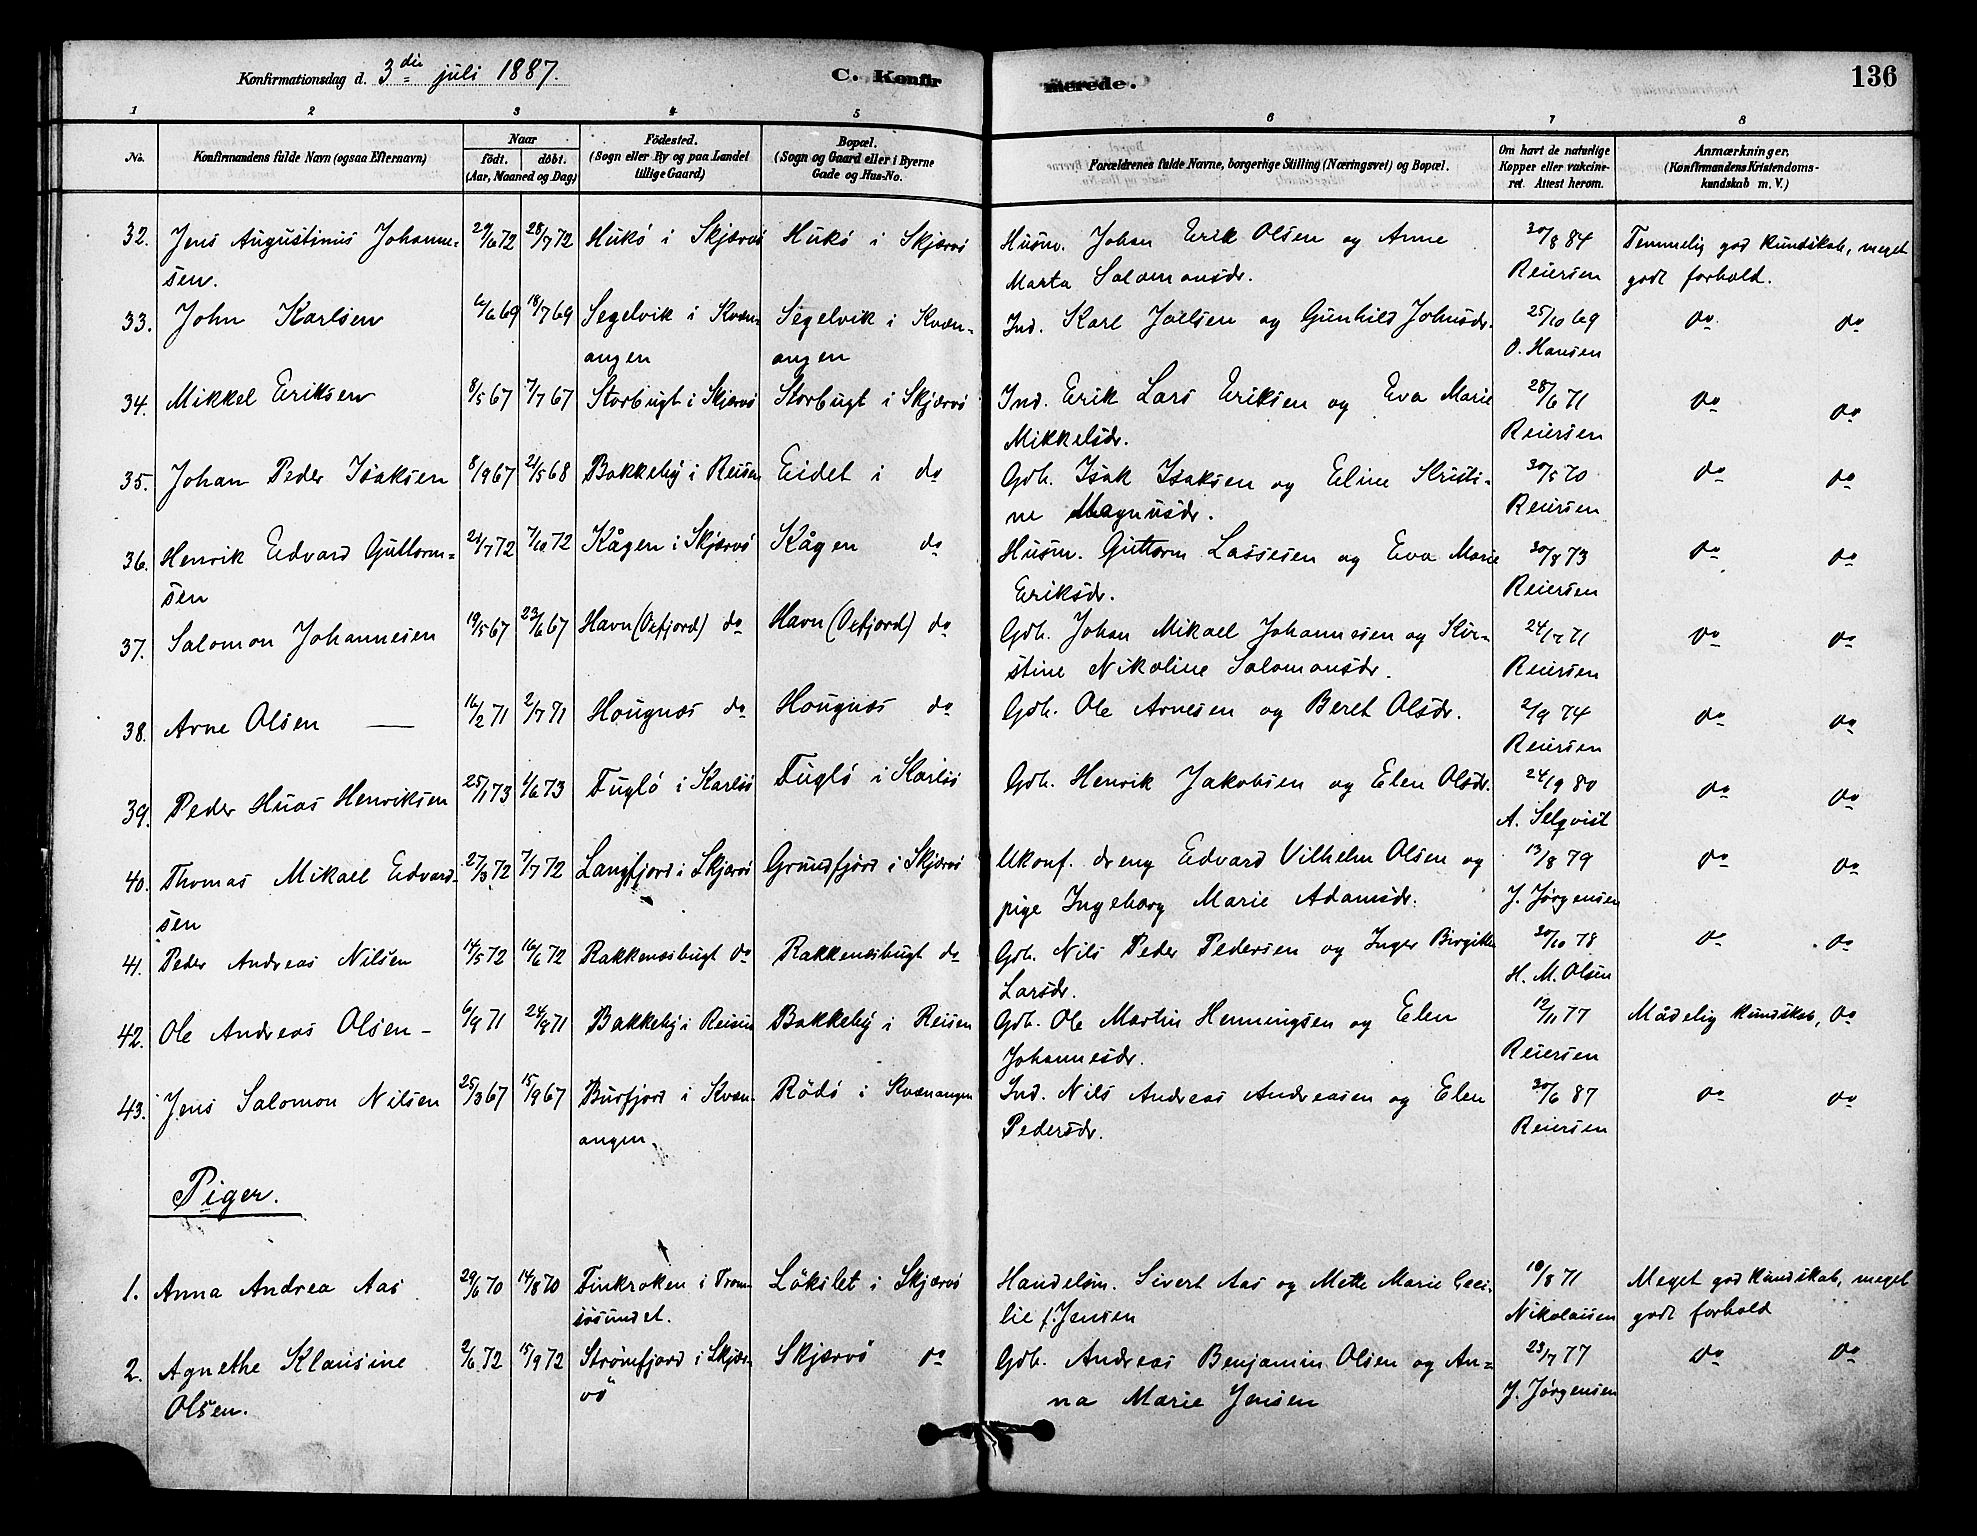 Konfirmationsdag d. 3die juli 1887.
C. Konfirmerede.
136
1 2 3 4 5 6 7 8
No.
Konfirmandens fulde Navn (ogsaa Efternavn)
Naar
födt. döbt.
(Aar, Maaned og Dag)
Födested.
(Sogn eller By og paa Landet
tillige Gaard)
Bopæl.
(Sogn og Gaard eller i Byerne
Gade og Hus-No.
Forældrenes fulde Navne, borgerlige Stilling (Næringsvei) og Bopæl.
Om havt de naturlige
Kopper eller vakcine-
ret. Attest herom.
Anmærkninger.
(Konfirmandens Kristendoms-
kundskab m. V.)
32. Jens Augustinus Johanne- 29/6 72 28/7 72 Hukö i Skjærvö Hukö i Skjærvö Husm. Johan Erik Olsen og Anne 30/8 84 Temmelig god kundskab, meget
sen. Marta Salamonsdr. Reiersen godt forhold.
33. John Karlsen 4/6 69 18/7 69 Segelvik i Kvæn- Segelvik i Kvæn- Ind. Karl Joelsen og Gunhild Johnsdr. 25/10 69 do do
angen angen O. Hansen
34. Mikkel Eriksen 8/5 67 7/7 67 Storbugt i Skjærvö Storbugt i Skjærvö Ind. Erik Lars Eriksen og Eva Marie 28/6 71 do do
Mikkelsdr. Reiersen
35. Johan Peder Isaksen 8/9 67 21/5 68 Bakkeby i Reisen Eidet i do Gdb. Isak Isaksen og Eline Kristi- 30/5 70 do do
ne Magnusdr. Reiersen
36. Henrik Edvard Guttorm- 21/7 72 7/10 72 Kågen i Skjærvö Kågen do Husm. Guttorm Lassesen og Eva Marie 30/8 73 do do
sen Eriksdr. Reiersen
37. Salomon Johannesen 19/5 67 23/6 67 Havn (Oxfjord) do Havn (Oxfjord) do Gdb. Johan Mikael Johannesen og Kir- 24/7 71 do do
stine Nikoline Salomonsdr. Reiersen
38. Arne Olsen — 16/2 71 2/7 71 Hougnæs do Hougnæs do Gdb. Ole Arnesen og Beret Olsdr. 2/9 74 do do
Reiersen
39. Peder Huas Henriksen 25/1 73 1/6 73 Fuglö i Karlsö Fuglö i Karlsö Gdb. Henrik Jakobsen og Elen Olsdr. 24/9 80 do do
A. Selqvist
40. Thomas Mikael Edvard- 27/3 72 7/7 72 Langfjord i Skjærvö Grundfjord i Skjærvö Ukonf. dreng Edvard Vilhelm Olsen og 13/8 79 do do
sen pige Ingeborg Marie Adamsdr. J. Jørgensen
41. Peder Andreas Nilsen 14/5 72 16/6 72 Rakkenæsbugt do Rakkenæsbugt do Gdb. Nils Peder Pedersen og Inger Birgitte 30/10 78 do do
Larsdr. H. M. Olsen
42. Ole Andreas Olsen - 6/9 71 24/9 71 Bakkeby i Reisen Bakkeby i Reisen Gdb. Ole Martin Henningsen og Elen 12/11 77 Mådelig kundskab, do
Johannesdr. Reiersen
43. Jens Salomon Nilsen 25/3 67 15/9 67 Burfjord i Kvæn- Rödö i Kvænangen Ind. Nils Andreas Andreasen og Elen 30/6 87 do do
angen Pedersdr. Reiersen
Piger.
1. Anna Andrea Aas 29/6 70 14/8 70 Finkroken i Trom- Lökslet i Skjærvö Handelsm. Sivert Aas og Mette Marie Ceci- 10/8 71 Meget god kundskab, meget
sösundet. lie f. Jensen Nikolaisen godt forhold
2. Agnethe Klausine 2/6 72 15/9 72 Strömfjord i Skjær- Skjærvö do Gdb. Andreas Benjamin Olsen og An- 23/7 77 do do
Olsen. vö na Marie Jensen J. Jørgensen